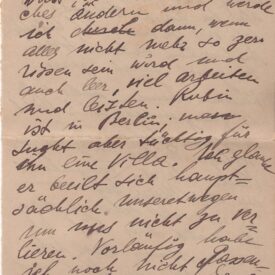 ches ändern und werde
ich doch dann, wenn
alles nicht mehr so zer-
rissen sein wird und
auch leer, viel arbeiten
und
ist in Berlin, man
sucht aber tüchtig für
ihn eine Villa. Ich glaube
er beeilt sich haupt-
sächlich unseretwegen
um uns nicht zu ver-
lieren. Vorläufig
ich noch nicht